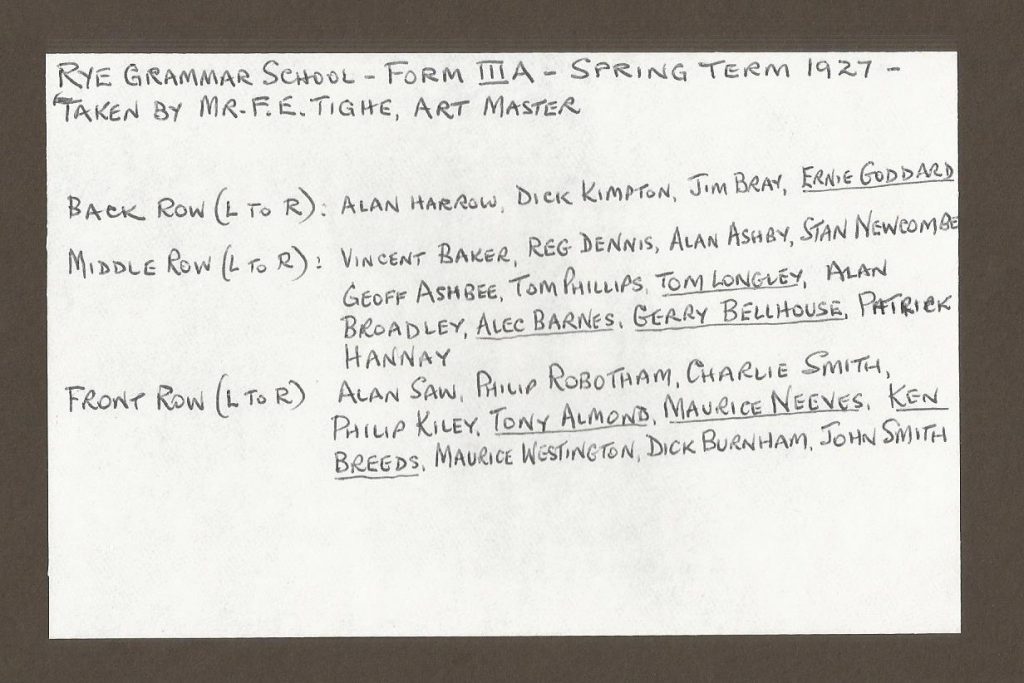 RYE GRAMMAR SCHOOL - FORM IIIA - SPRING TERM 1927 -
TAKEN BY MR. F. E. TIGHE, ART MASTER
BACK ROW (L TO R): ALAN HARROW, DICK KIMPTON, JIM BRAY, ERNIE GODDARD
MIDDLE ROW (L TO R): VINCENT BAKER, REG DENNIS, ALAN ASHBY, STAN NEWCOMBE
GEOFF ASHBEE, TOM PHILLIPS, TOM LONGLEY, ALAN
BROADLEY, ALEC BARNES, GERRY BELLHOUSE, PATRICK
HANNAY
FRONT ROW (L TO R) ALAN SAW, PHILIP ROBOTHAM, CHARLIE SMITH,
PHILIP KILEY, TONY ALMOND, MAURICE NEEVES, KEN
BREEDS, MAURICE WESTINGTON, DICK BURNHAM, JOHN SMITH